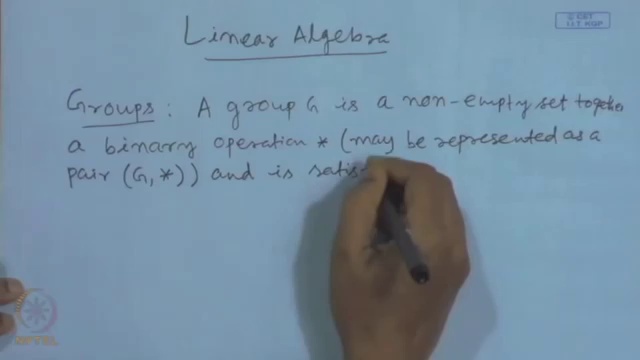 © CET
I.I.T. KGP
Linear Algebra
Groups : A group G is a non-empty set together
a binary operation * (may be represented as a
pair (G, *)) and is satis
NPTEL